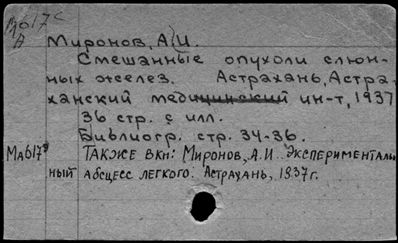 Мб17с
А
Миронов, А.И.
Смешанные опухоли слюн-
ных желез. Астрахань, Астра-
ханский медицинский ин-т, 1937
36 стр. с илл.
Библиогр. стр. 34-36.
Ма617э ТАКЖЕ В КН: Миронов, А.И. Эксперименталь
ный абсцесс легкого. Астрахань, 1937г.